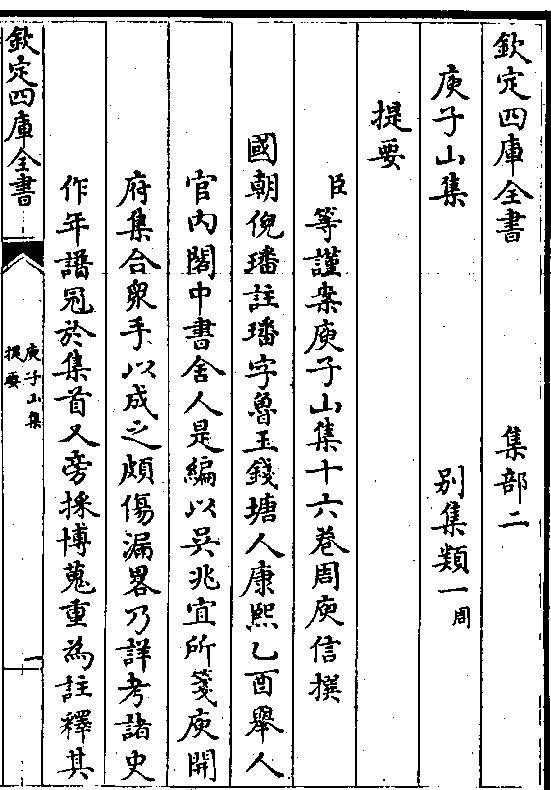 欽定四庫全書
集部二
庾子山集
別集類一周
提要
臣等謹案庾子山集十六卷周庾信撰
國朝倪璠註璠字魯玉錢塘人康熙乙酉舉人
官內閣中書舍人是編以吳兆宜所箋庾開
府集合衆手以成之頗傷漏畧乃詳考諸史
作年譜冠於集首又旁採博蒐重為註釋其
欽定四庫全書
庾子山集
提要
一